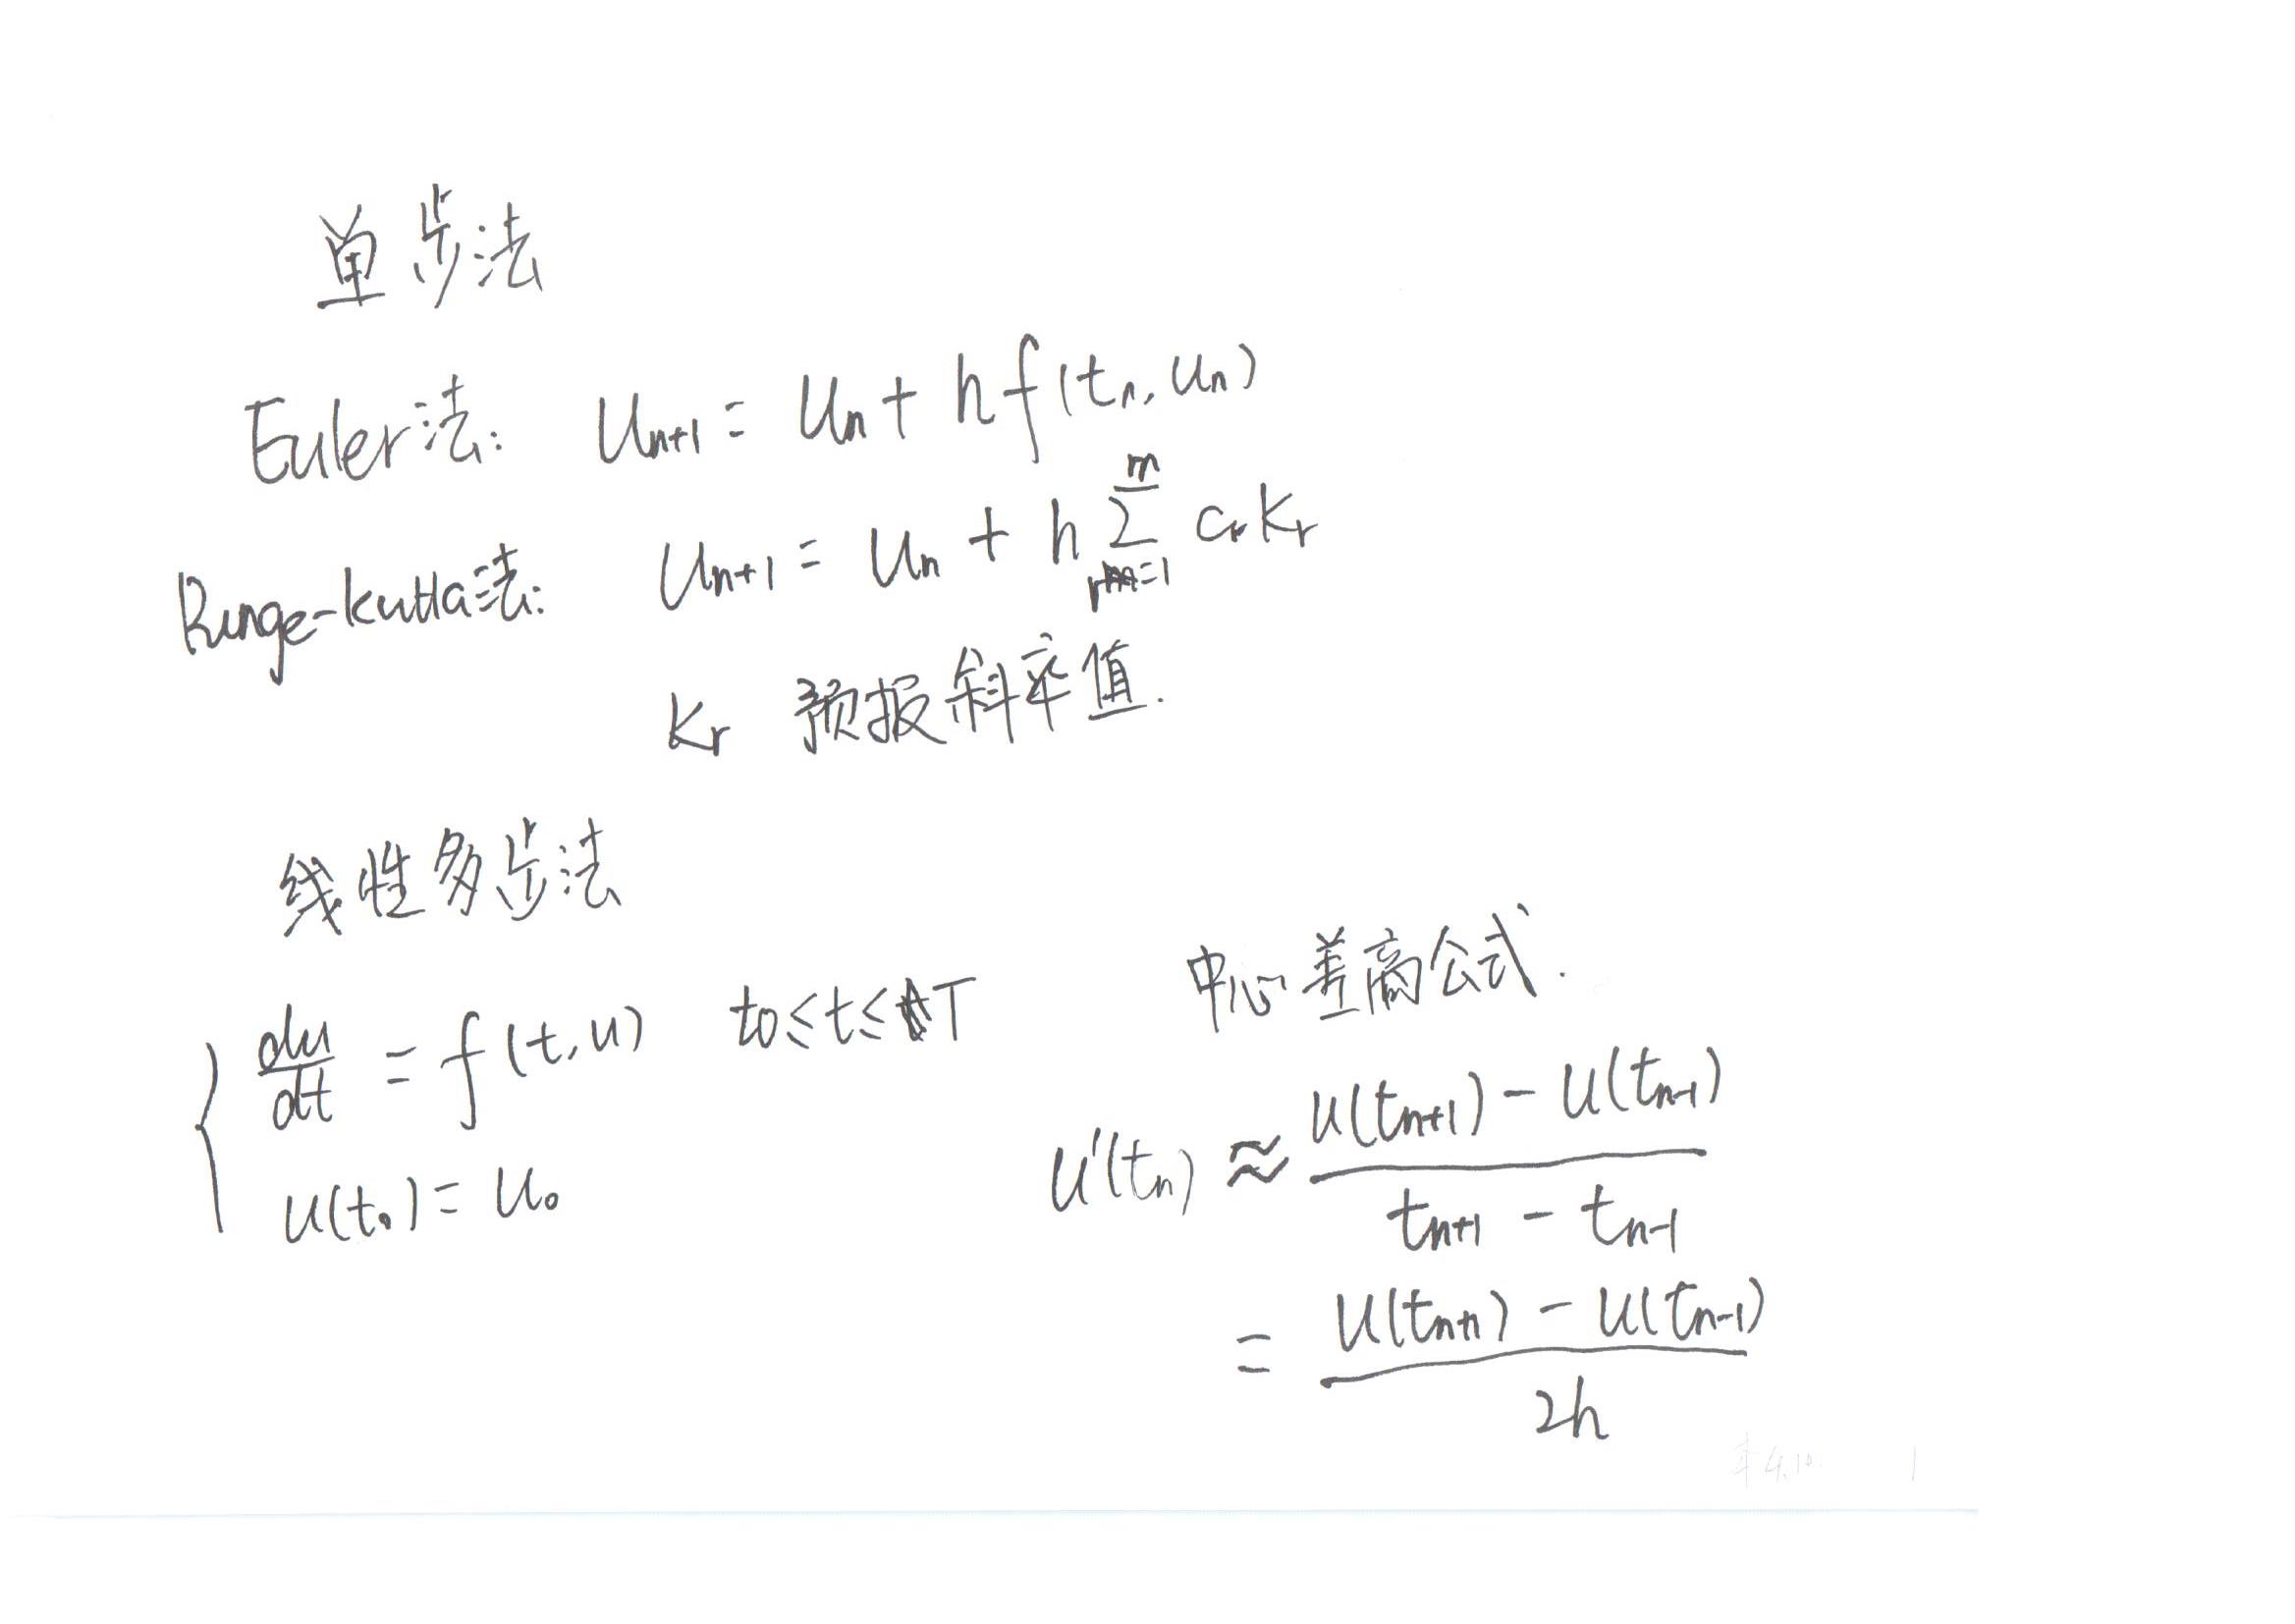 单步法
Euler法: u_{n+1} = u_n + h f(t_n, u_n)
Runge-kutta法: u_{n+1} = u_n + h \sum_{r=1}^{m} c_r k_r
k_r 预报斜率值.
线性多步法
中心差商公式.
\begin{cases} \frac{du}{dt} = f(t, u) \quad t_0 ≤ t ≤ T \\ u(t_0) = u_0 \end{cases}
u'(t_n) ≈ \frac{u(t_{n+1}) - u(t_{n-1})}{t_{n+1} - t_{n-1}}
= \frac{u(t_{n+1}) - u(t_{n-1})}{2h}